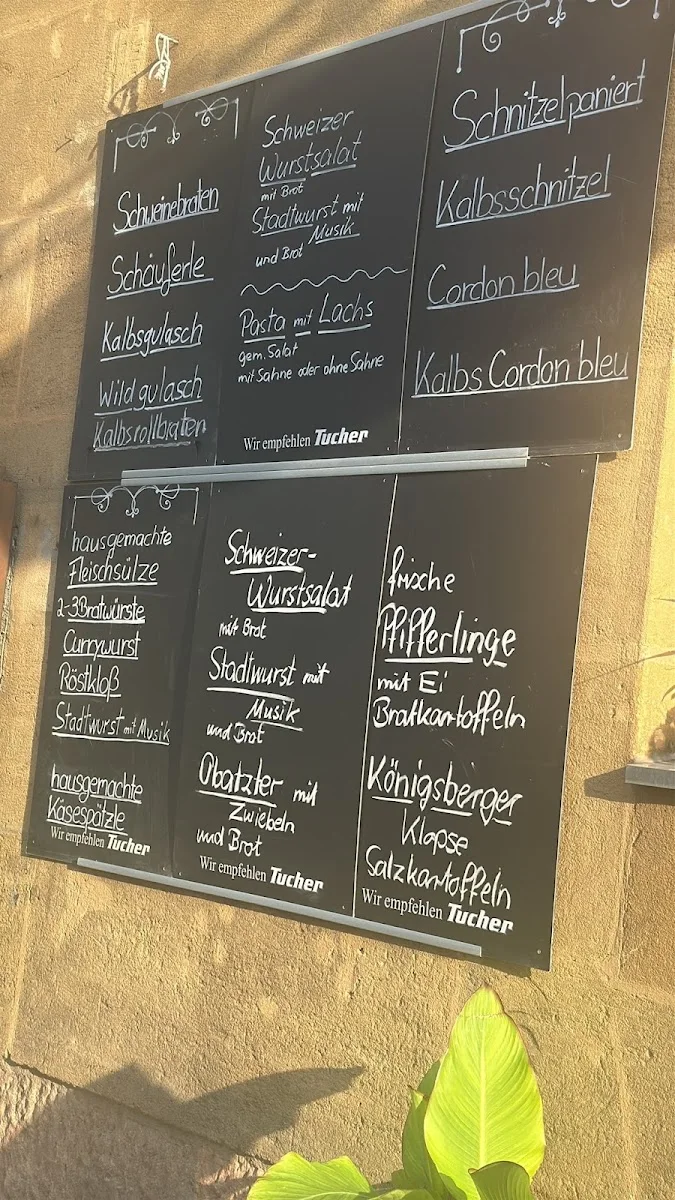 Schweinebraten
Schäuferle
Kalbsgulasch
Wildgulasch
Kalbsrollbraten
Schweizer
Wurstsalat
mit Brot
Stadtwurst mit
Musik
und Brot
Pasta mit Lachs
gem. Salat
mit Sahne oder ohne Sahne
Wir empfehlen Tucher
Schnitzel paniert
Kalbsschnitzel
Cordon bleu
Kalbs Cordon bleu
hausgemachte
Fleischsülze
2-3 Bratwürste
Currywurst
Röstkloß
Stadtwurst mit Musik
hausgemachte
Käsespätzle
Wir empfehlen Tucher
Schweizer-
Wurstsalat
mit Brot
Stadtwurst mit
Musik
und Brot
Obatzter mit
Zwiebeln
und Brot
Wir empfehlen Tucher
frische
Pfifferlinge
mit Ei
Bratkartoffeln
Königsberger
Klopse
Salzkartoffeln
Wir empfehlen Tucher